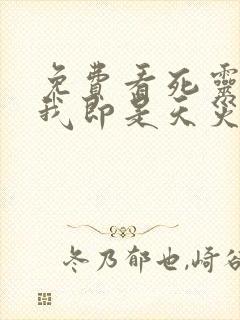 免費看死靈
我即是天災
冬乃郁也,崎谷